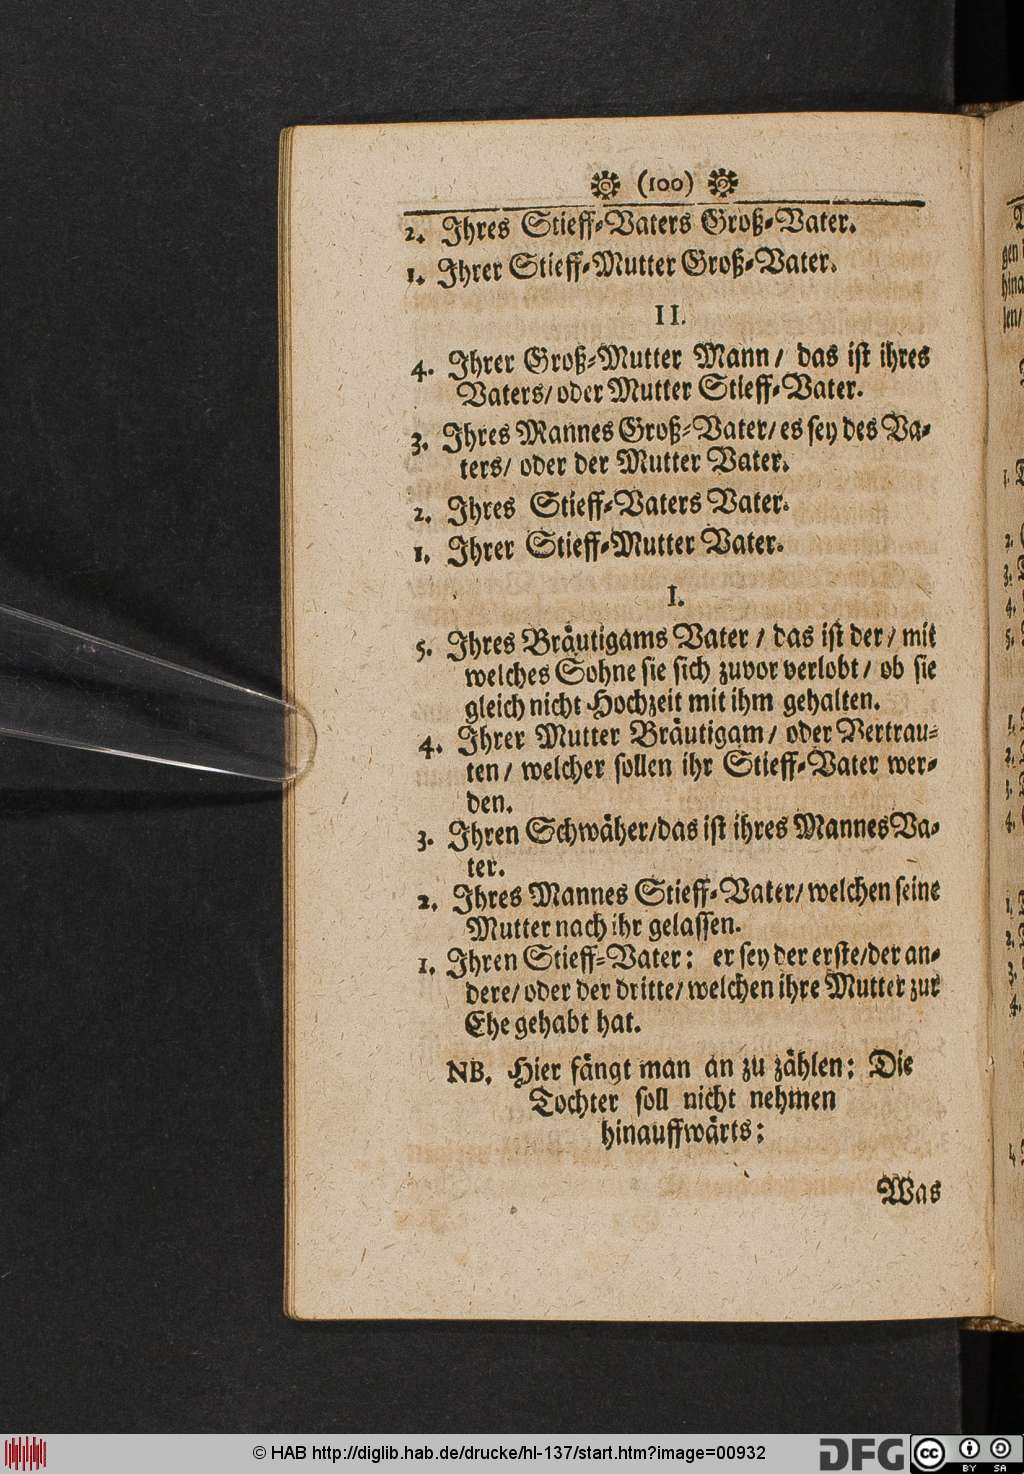 (100)
2. Ihres Stieff-Vaters Groß-Vater.
1. Ihrer Stieff-Mutter Groß-Vater.
II.
4. Ihrer Groß-Mutter Mann/ das ist ihres
Vaters/ oder Mutter Stieff-Vater.
3. Ihres Mannes Groß-Vater/ es sey des Va-
ters/ oder der Mutter Vater.
2. Ihres Stieff-Vaters Vater.
1. Ihrer Stieff-Mutter Vater.
I.
5. Ihres Bräutigams Vater / das ist der / mit
welches Sohne sie sich zuvor verlobt / ob sie
gleich nicht Hochzeit mit ihm gehalten.
4. Ihrer Mutter Bräutigam / oder Vertrau-
ten / welcher sollen ihr Stieff-Vater wer-
den.
3. Ihren Schwäher/das ist ihres Mannes Va-
ter.
2. Ihres Mannes Stieff-Vater/ welchen seine
Mutter nach ihr gelassen.
1. Ihren Stieff-Vater: er sey der erste/der an-
dere/ oder der dritte/ welchen ihre Mutter zur
Ehe gehabt hat.
NB. Hier fängt man an zu zählen: Die
Tochter soll nicht nehmen
hinauffwärts:
Was
© HAB http://diglib.hab.de/drucke/hl-137/start.htm?image=00932
DFG
cc BY SA